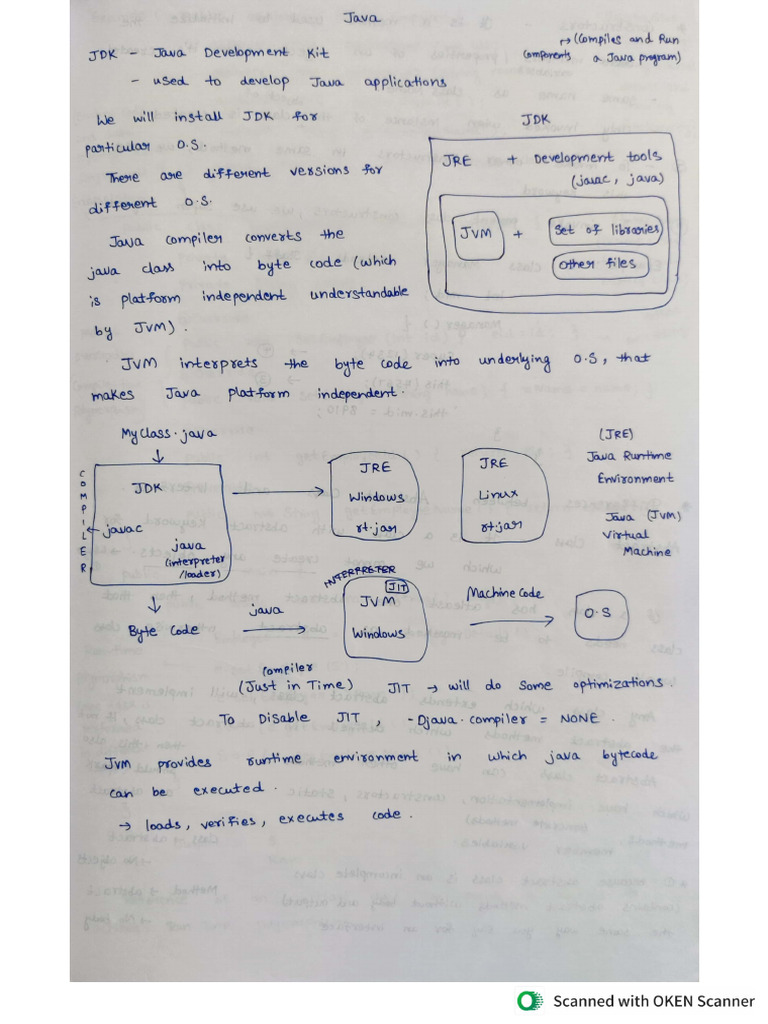 Java
JDK - Java Development Kit
- used to develop Java applications
→ (Compiles and Run
components a Java program)
We will install JDK for
particular O.S.
There are different versions for
different O.S.
Java compiler converts the
java class into byte code (which
is platform independent understandable
by JVM).
JDK
JRE + Development tools
(javac, java)
JVM + Set of libraries
Other files
JVM interprets the byte code into underlying O.S, that
makes Java platform independent.
MyClass.java
↓
COMPILER
JDK
← javac
java
(interpreter
/loader)
→
JRE
Windows
rt.jar
JRE
Linux
rt.jar
(JRE)
Java Runtime
Environment
Java (JVM)
Virtual
Machine
↓
Byte Code
java
→
INTERPRETER
JIT
JVM
Windows
Machine Code
→
O.S
compiler
(Just in Time) JIT → will do some optimizations.
To Disable JIT, -Djava.compiler = NONE.
JVM provides runtime environment in which java bytecode
can be executed.
→ loads, verifies, executes code.
Scanned with OKEN Scanner